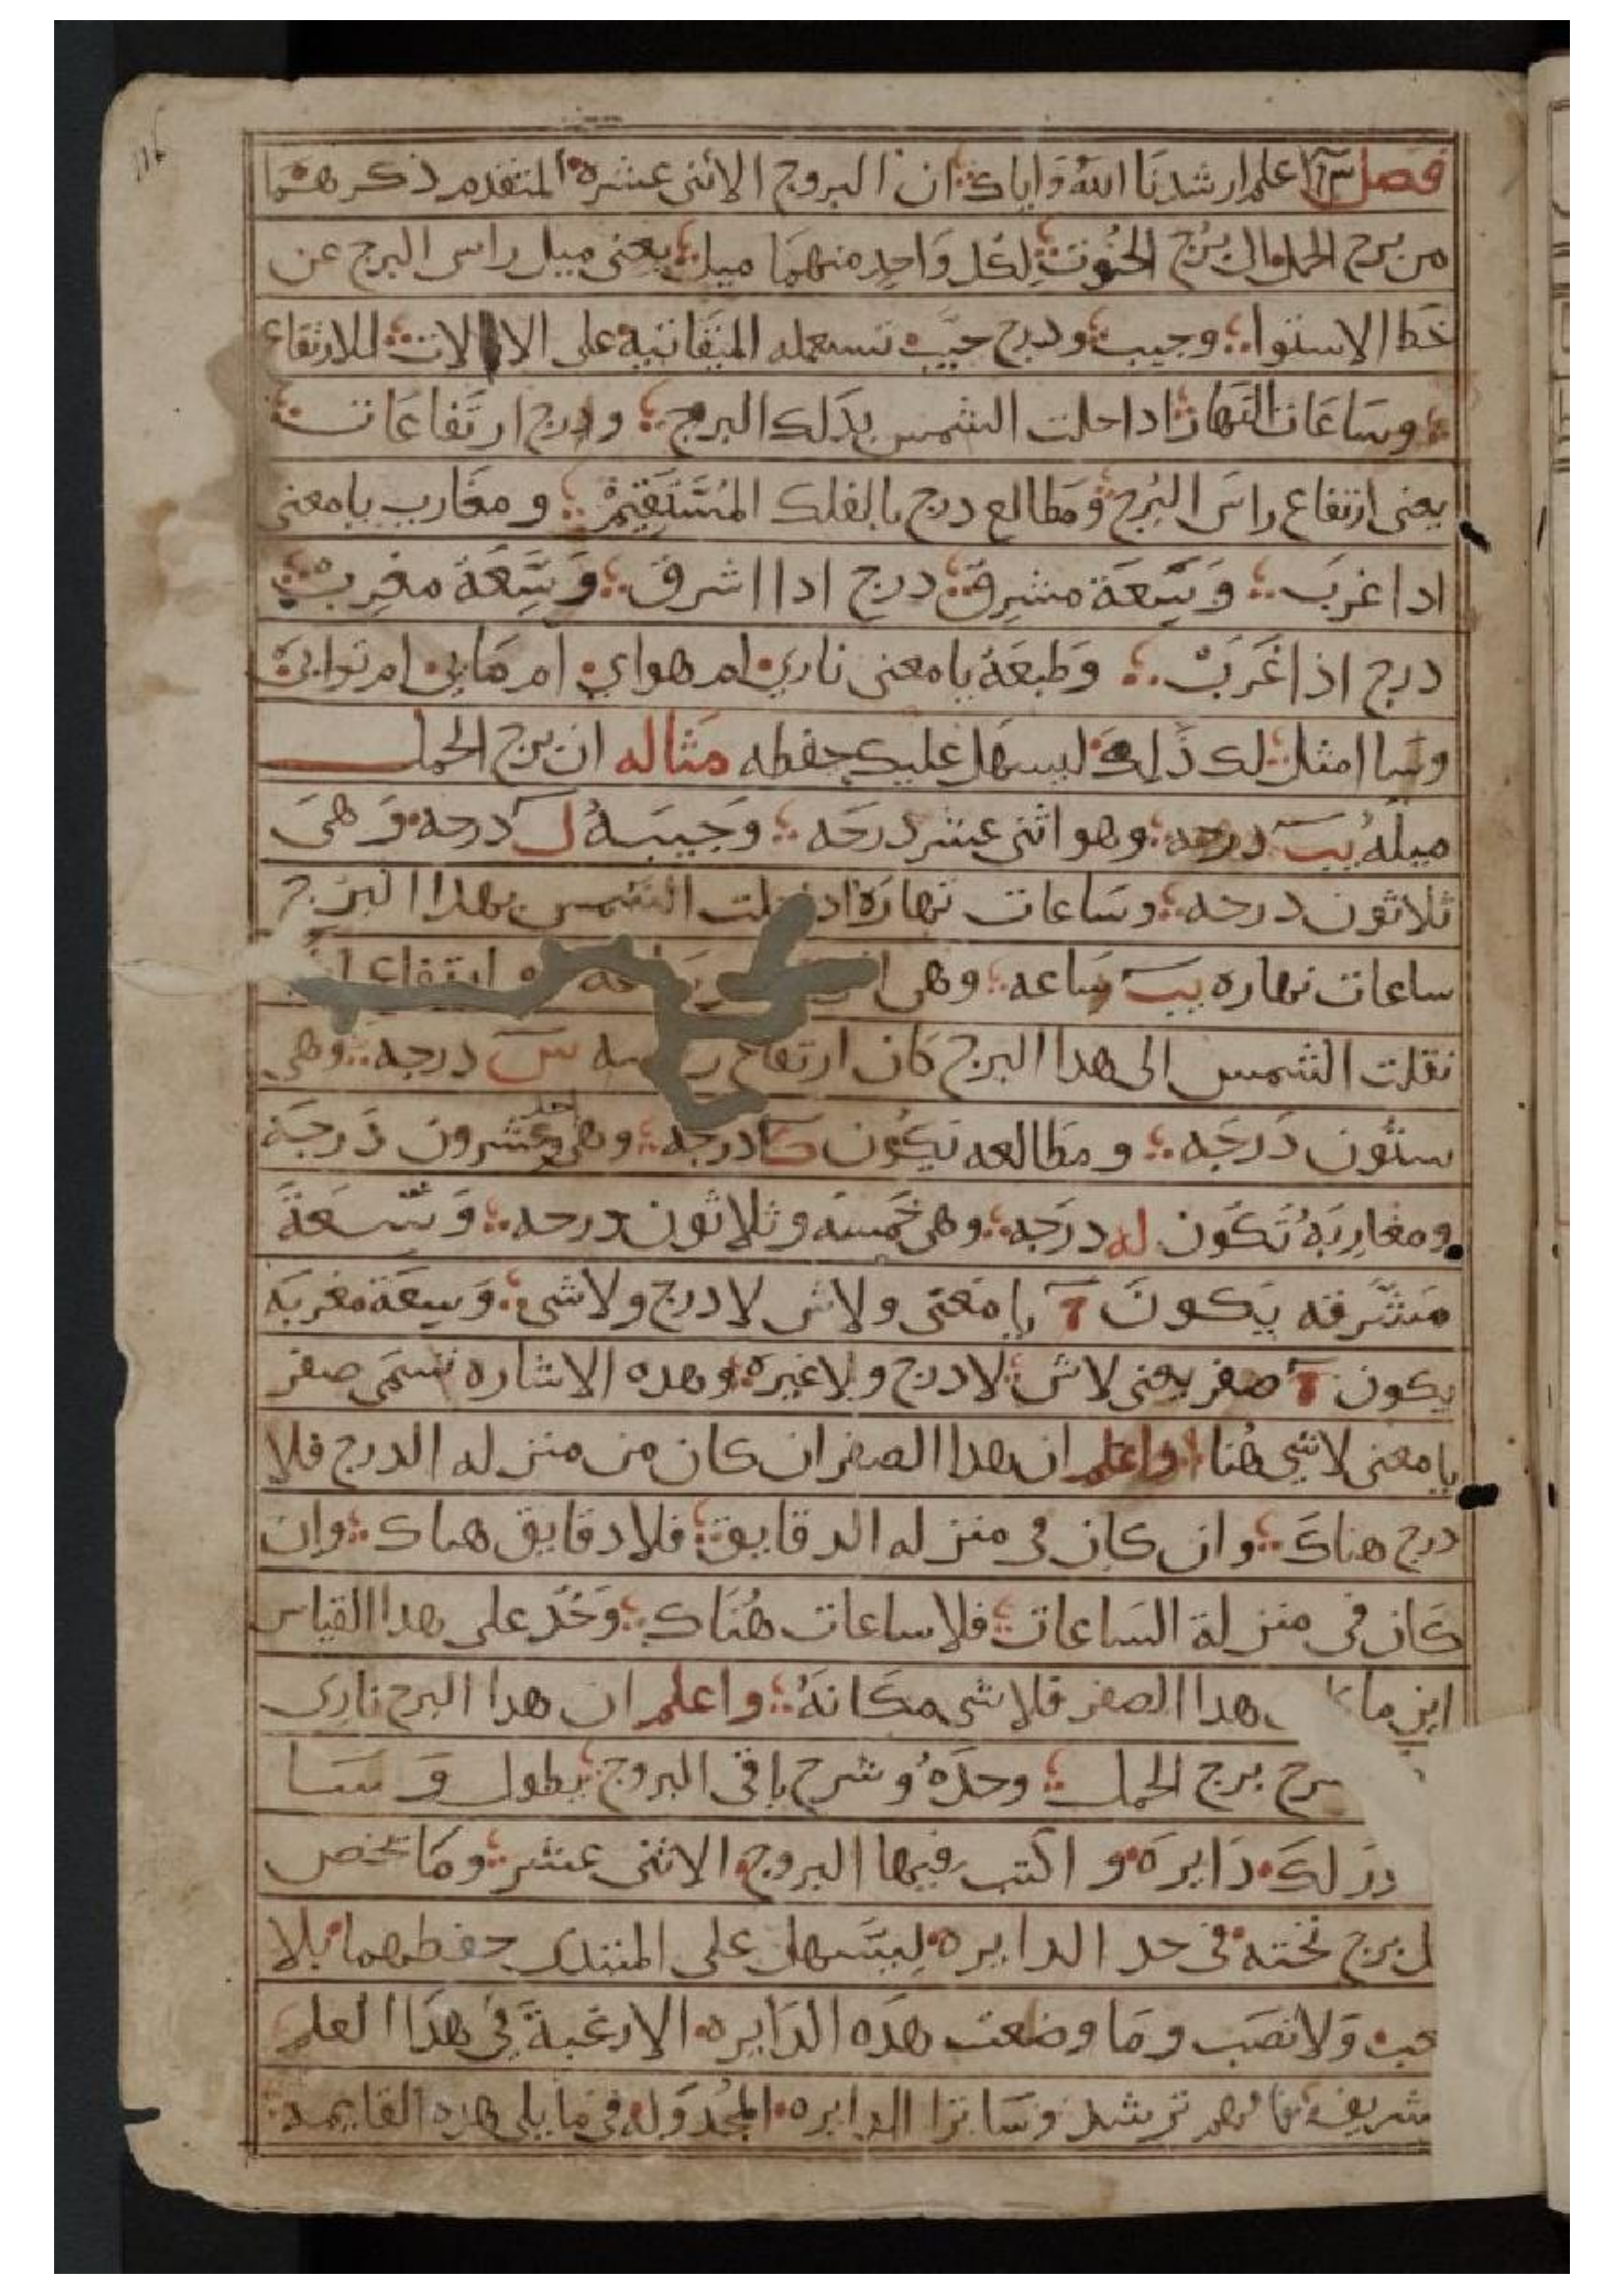 فصل اعلم ارشدنا الله واياك ان البروج الاثنى عشره المتقدم ذكرهما
من برج الحمل الى برج الحوت لكل واحد منهما ميل يعنى ميل راس البرج عن
خط الاستوا وجيب ودرج جيب تستعمله الميقاتيه على الالات للارتفاع
وساعات النهار ادا حلت الشمس بدلك البرج ودرج ارتفاعات
يعنى ارتفاع راس البرج ومطالع درج بالفلك المستقيم ومغارب يا معنى
ادا غرب وسعة مشرق درج ادا اشرق وسعة مغرب
درج اذا غرب وطبعه يا معنى نارى ام هواي ام مايى ام ترابى
وسا امثل لك ذلك ليسهل عليك حفظه مثاله ان برج الحمل
ميله يب درجه وهو اثنى عشر درجه وجيبه ل درجه وهى
ثلاثون درجه وساعات نهاره اد حلت الشمس بهدا البرج
ساعات نهاره يب ساعه وهى ارتفاع
نقلت الشمس الى هدا البرج كان ارتفاع س درجه وهى
ستون درجه ومطالعه تكون كا درجه وهى احد وعشرون درجة
ومغاربه تكون له درجه وهى خمسه وثلاثون درجه وسعة
مشرقه يكون يا معنى ولاش لا درج ولا شى وسعة مغربه
يكون صفر يعنى لاش لا درج ولا غيره وهده الاشاره تسمى صفر
يا معنى لا شي هنا واعلم ان هدا الصفر ان كان من منزله الدرج فلا
درج هناك وان كان فى منزله الدقايق فلا دقايق هناك وان
كان فى منزلة الساعات فلا ساعات هناك وخد على هدا القياس
اين ما هدا الصفر فلا شى مكانه واعلم ان هدا البرج نارى
برج الحمل وحده وشرح باقى البروج يطول وسا
لك دايره واكتب فيها البروج الاثنى عشر وما يخص
برج تحته فى حد الدايره ليسهل على المبتدى حفظهما بلا
ولا نصب وما وضعت هده الدايره الا رغبة في هذا العلم
شريف فافهم ترشد وسا ترا الدايره المجدوله فى ما يلى هده القايمه